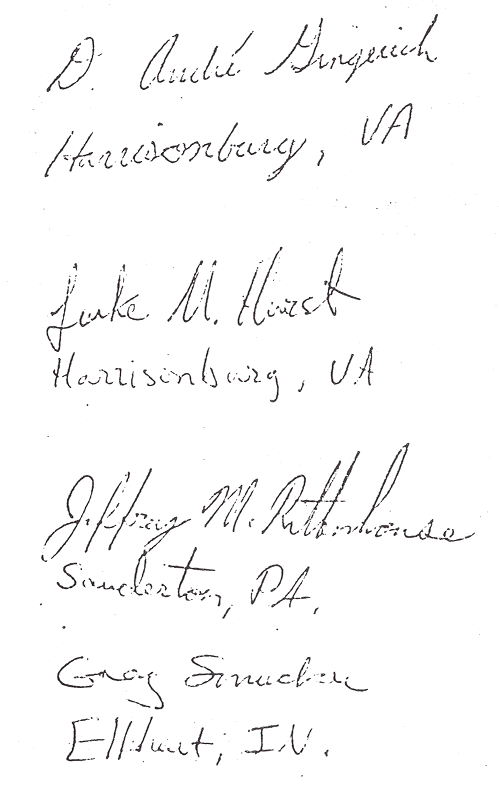 D. André Gingerich
Harrisonburg, VA
Luke M. Hurst
Harrisonburg, VA
Jeffrey M. Rittenhouse
Souderton, PA.
Greg Smucker